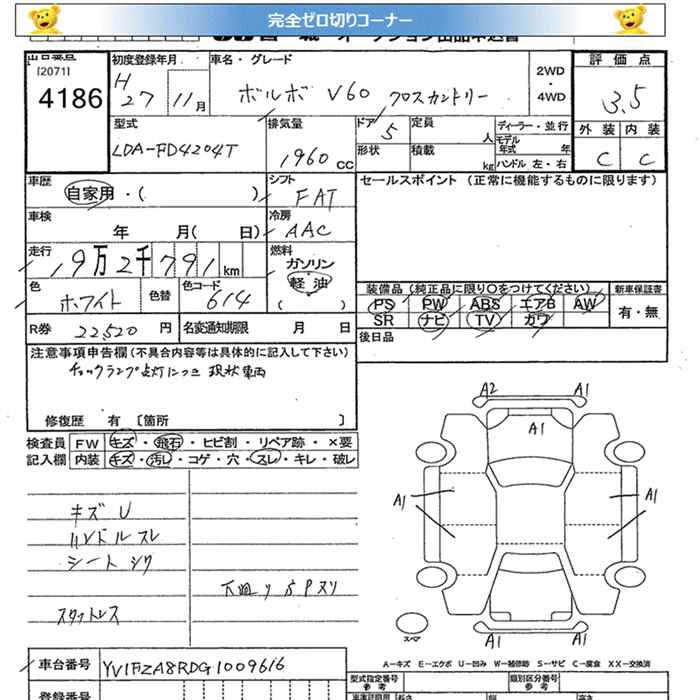 完全ゼロ切りコーナー
出品番号
[2071]
4186
初度登録年月 H27 11月
車名・グレード ボルボ V60 クロスカントリー
2WD・4WD
評価点 3.5
型式 LDA-FD4204T
排気量 1960 CC
ドア 5
定員 人
ディーラー・並行
モデル年式 年
形状
積載 kg
ハンドル 左・右
外装 内装
C C
車歴 自家用・( )
シフト FAT
セールスポイント (正常に機能するものに限ります)
車検 年 月( 日)
冷房 AAC
走行 19万2千791km
燃料 ガソリン 軽油 ( )
色 ホワイト 色替
色コード 614
装備品(純正品に限り〇をつけてください)
新車保証書 有・無
PS PW ABS エアB AW
SR ナビ TV ガワ
R券 22,520 円
名変通知期限 月 日
後日品
注意事項申告欄(不具合内容等は具体的に記入して下さい)
チェックランプ点灯につき 現状車両
修復歴 有 〔箇所 〕
検査員記入欄
FW キズ・飛石・ヒビ割・リペア跡・×要
内装 キズ・汚レ・コゲ・穴・スレ・キレ・破レ
キズ U
ハンドル スレ
シート シワ
下廻り SPヌリ
スタットレス
A2 A1
A1
A1 A1
A1 A1
スペア
A-キズ E-エクボ U-凹み W-補修跡 S-サビ C-腐食 XX-交換済
車台番号 YV1FZA8RDG1009616
登録番号
型式指定番号 参考
類別区分番号 参考